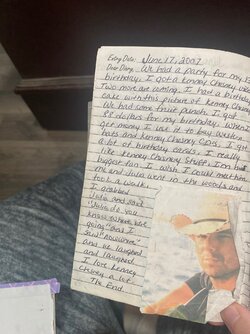 June 17, 2007
Dear Diary, We had a party for my
birthday. I got a Kenney Chesney
Two more are coming. I had a birthday
cake with this picture of Kenney
We had some fruit punch. I got
dollars for my birthday. When
get money I use it to buy western
hats and Kenney Chesney CDs. I got
a lot of birthday cards. I really
like Kenney Chesney stuff. I'm his
biggest fan. I wish I could
me and Julia went in the woods and
took a walk.
I grabbed
Julia and said
"Julia do you
know where we're
going" and I
said
and we laughed
and laughed
I love Kenney
Chesney a lot
The End.